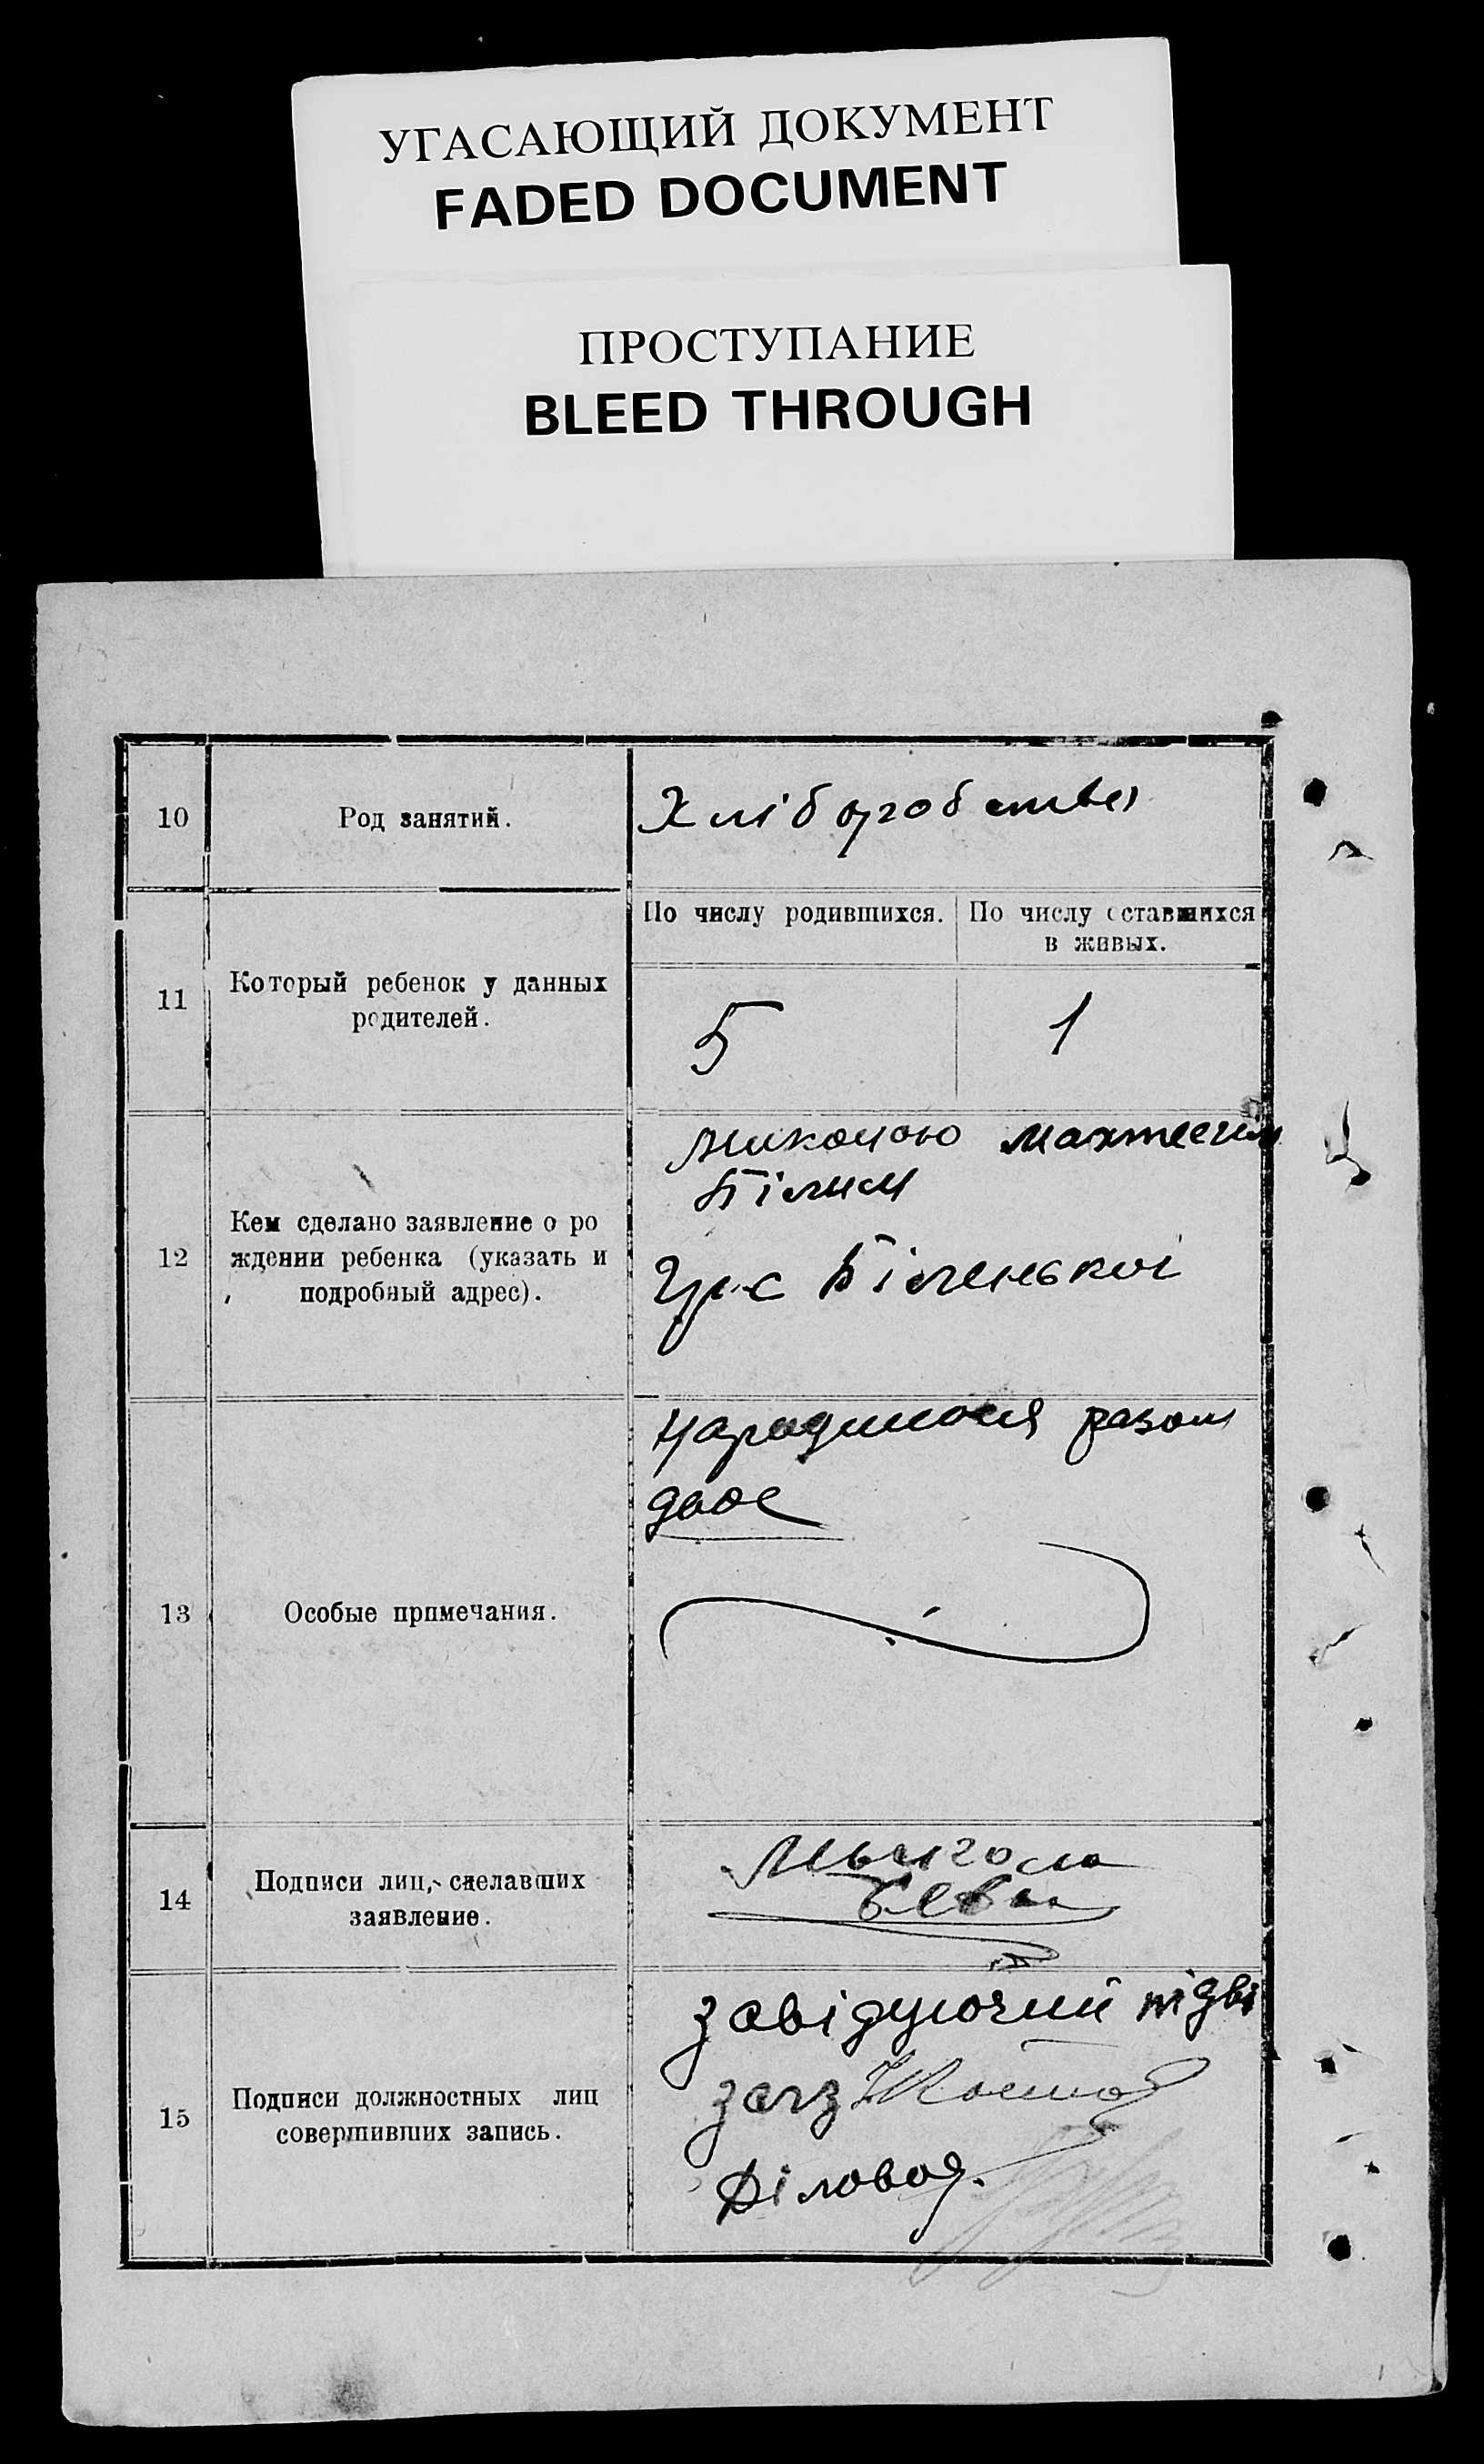 УГАСАЮЩИЙ ДОКУМЕНТ
FADED DOCUMENT
ПРОСТУПАНИЕ
BLEED THROUGH
10
Род занятий.
Хліборобство
11
Который ребенок у данных
родителей.
По числу родившихся.
По числу оставшихся
в живых.
5
1
12
Кем сделано заявление о ро
ждении ребенка (указать и
подробный адрес).
Миколою
Білим
гр. с Біленької
13
Особые примечания.
Народилося разом
двое
14
Подписи лиц, сделавших
заявление.
15
Подписи должностных лиц
совершивших запись.
завідуючий підві
загз
Діловод.